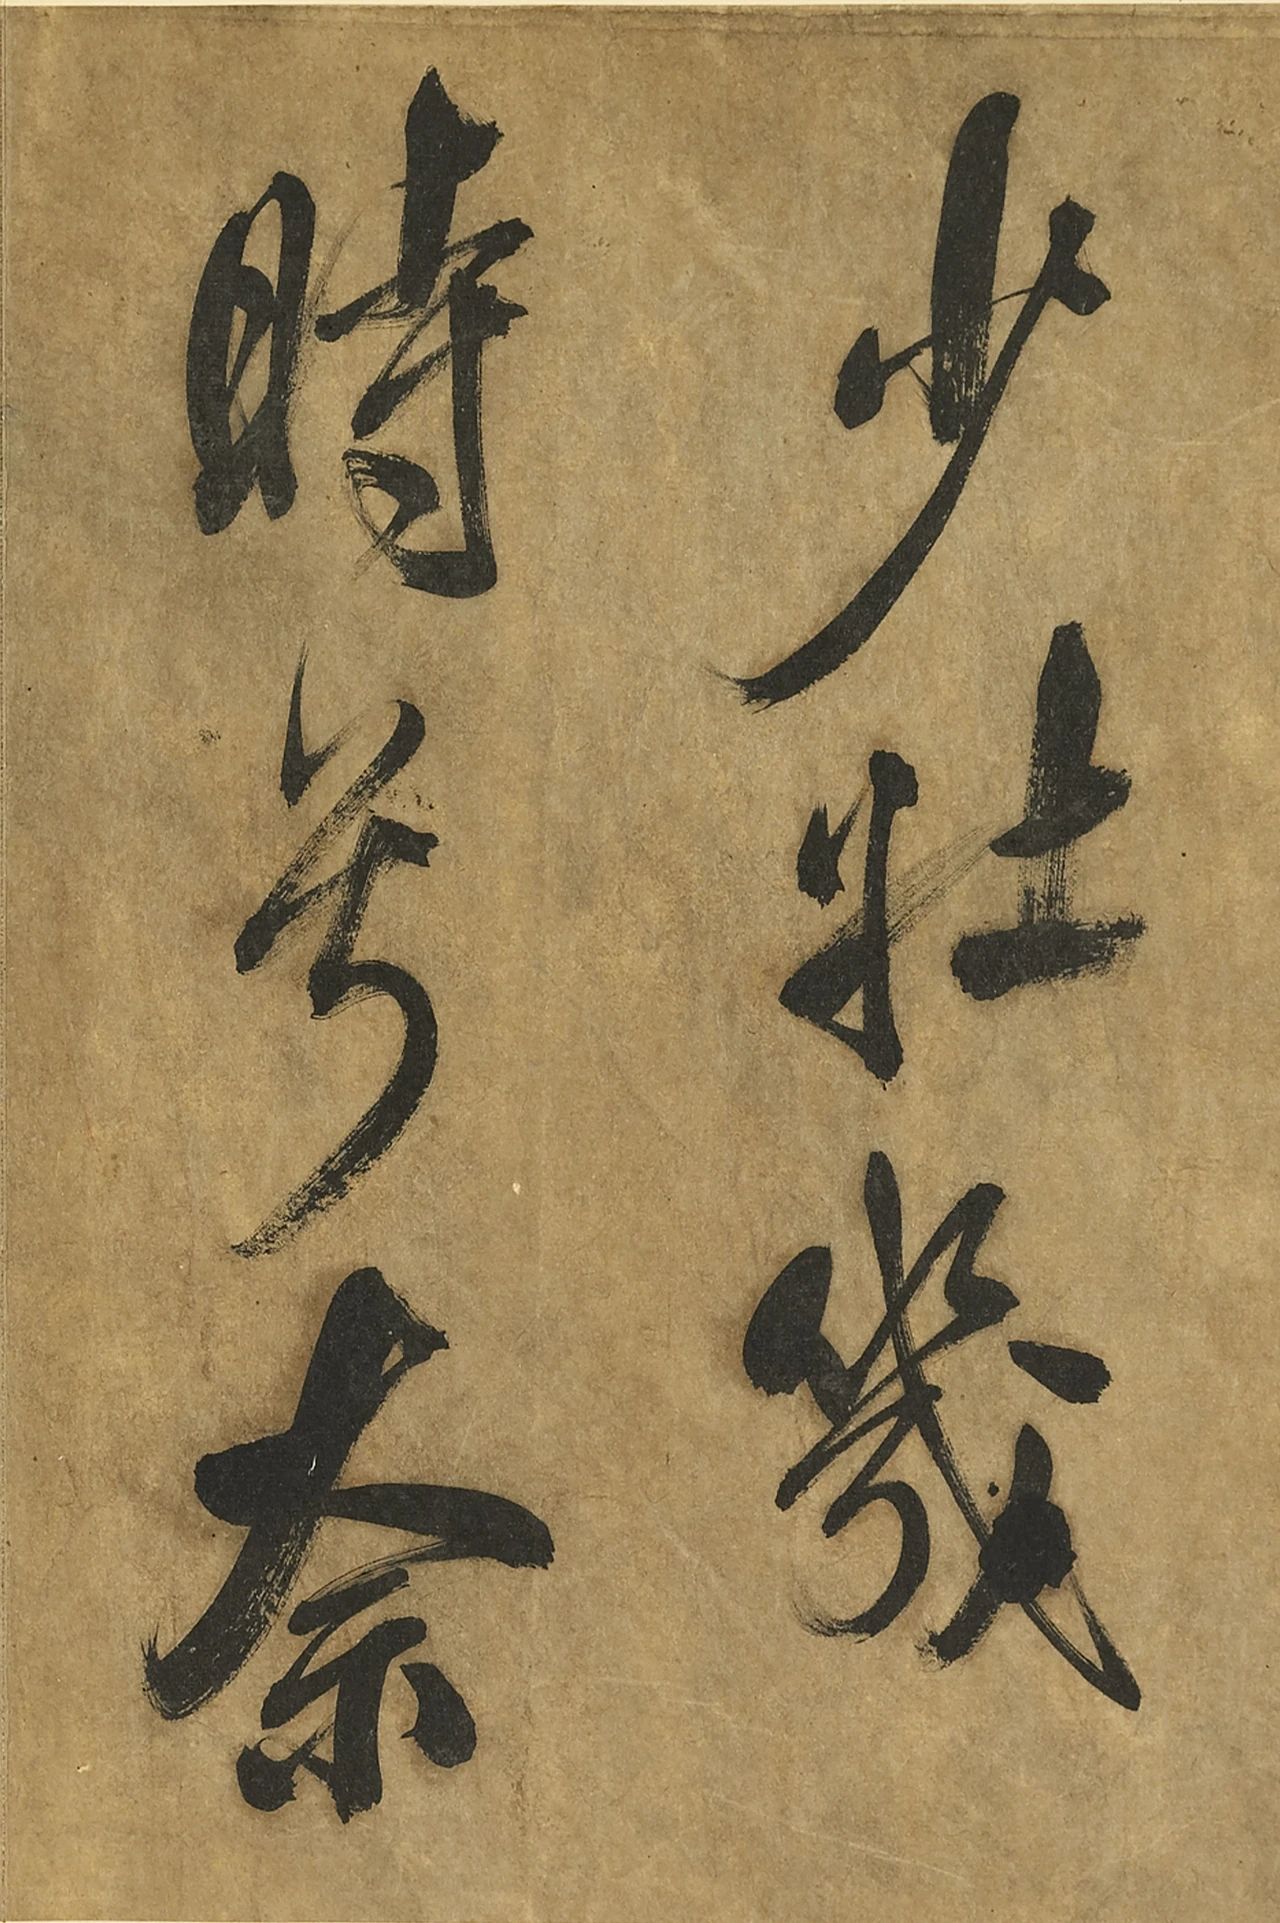 少壯幾
時兮奈